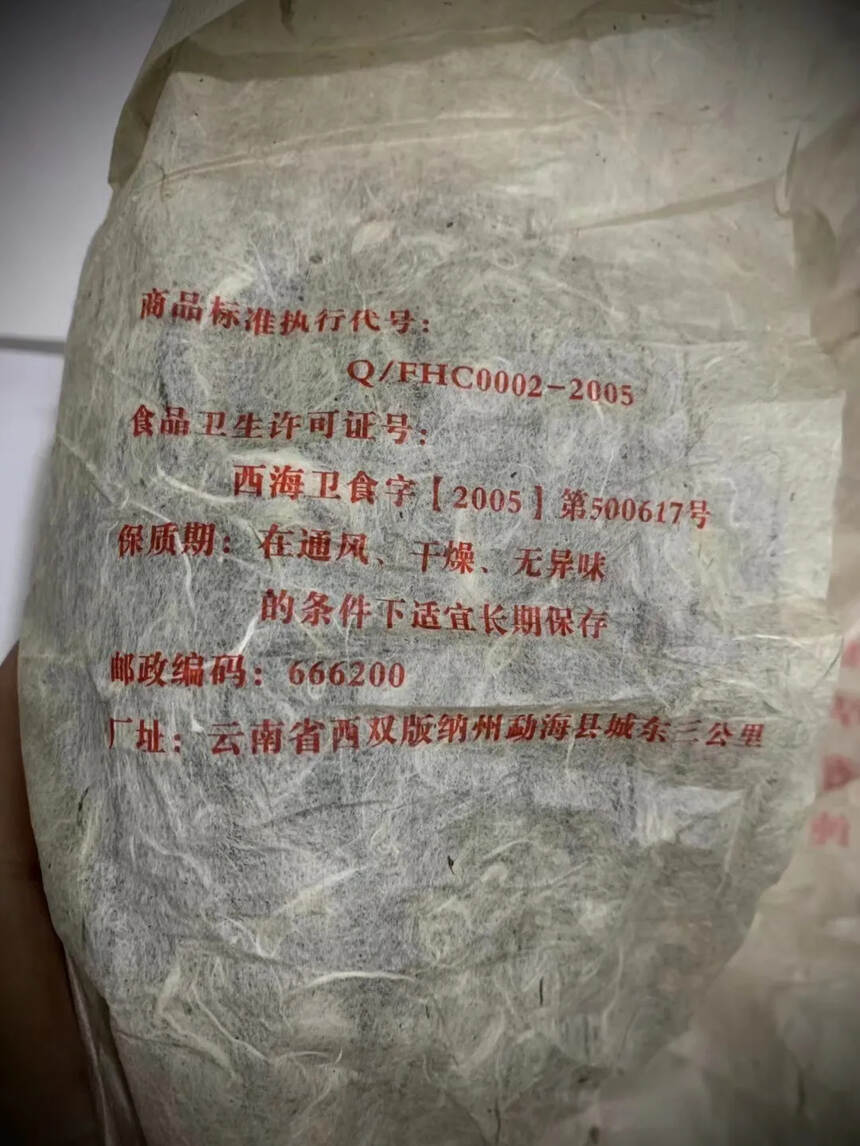 商品标准执行代号：
Q/FHC0002-2005
食品卫生许可证号：
西海卫食字【2005】第500617号
保质期：在通风、干燥、无异味
的条件下适宜长期保存
邮政编码：666200
厂址：云南省西双版纳州勐海县城东三公里